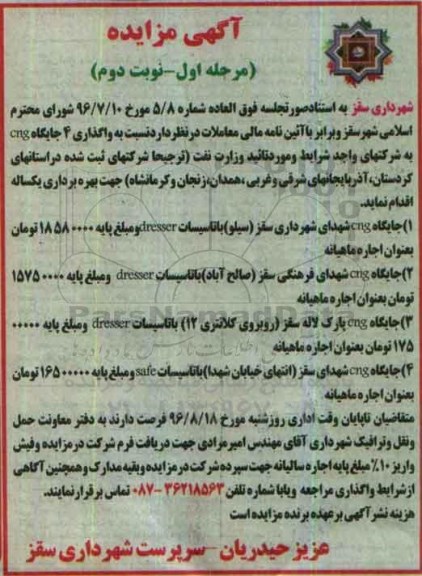 آگهی مزایده
(مرحله اول-نوبت دوم)
شهرداری سقز به استناد صورتجلسه فوق العاده شماره ۵/۸ مورخ ۹۶/۷/۱۰ شورای محترم
اسلامی شهر سقز و برابر با آئین نامه مالی معاملات در نظر دارد نسبت به واگذاری ۴ جایگاه cng
به شرکتهای واجد شرایط و مورد تائید وزارت نفت (ترجیحا شرکتهای ثبت شده در استانهای
کردستان، آذربایجانهای شرقی و غربی ،همدان،زنجان و کرمانشاه) جهت بهره برداری یکساله
اقدام نماید.
۱)جایگاه cng شهدای شهرداری سقز (سیلو)با تاسیسات dresser ومبلغ پایه ۱۸۵۸۰۰۰۰ تومان
بعنوان اجاره ماهیانه
۲)جایگاه cng شهدای فرهنگی سقز (صالح آباد)با تاسیسات dresser ومبلغ پایه ۱۵۷۵۰۰۰۰
تومان بعنوان اجاره ماهیانه
۳)جایگاه cng پارک لاله سقز (روبروی کلانتری ۱۲) باتاسیسات dresser ومبلغ پایه ۰۰۰۰۰
۱۷۵ تومان بعنوان اجاره ماهیانه
۴)جایگاه cng شهدای سقز (انتهای خیابان شهدا)باتاسیسات safe ومبلغ پایه ۱۶۵۰۰۰۰۰ تومان
بعنوان اجاره ماهیانه
متقاضیان تا پایان وقت اداری روز شنبه مورخ ۹۶/۸/۱۸ فرصت دارند به دفتر معاونت حمل
ونقل و ترافیک شهرداری آقای مهندس امیر مرادی جهت دریافت فرم شرکت در مزایده وفیش
واریز ۱۰٪ مبلغ پایه اجاره سالیانه جهت سپرده شرکت در مزایده وبقیه مدارک و همچنین آگاهی
از شرایط واگذاری مراجعه ویا با شماره تلفن ۳۶۲۱۸۵۶۳-۰۸۷ تماس برقرار نمایند.
هزینه نشر آگهی بر عهده برنده مزایده است
عزیز حیدریان -سرپرست شهرداری سقز